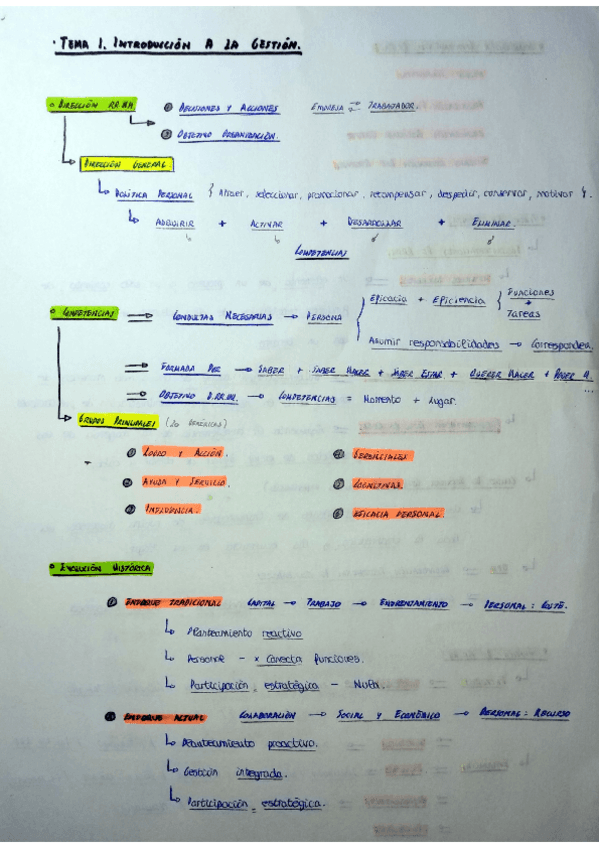 · TEMA 1. INTRODUCCIÓN A LA GESTIÓN.
DIRECCIÓN RR.HH → ① DECISIONES Y ACCIONES EMPRESA ⇄ TRABAJADOR.
② OBJETIVO ORGANIZACIÓN.
→ DIRECCIÓN GENERAL
↳ POLÍTICA PERSONAL { Atraer, seleccionar, promocionar, recompensar, despedir, conservar, motivar }.
↳ ADQUIRIR + ACTIVAR + DESARROLLAR + ELIMINAR.
COMPETENCIAS
COMPETENCIAS ⇒ CONDUCTAS NECESARIAS → PERSONA { Eficacia + Eficiencia { Funciones + Tareas
Asumir responsabilidades → Corresponden.
⇒ FORMADA POR → SABER + SABER HACER + SABER ESTAR + QUERER HACER + PODER H. ...
⇒ OBJETIVO D.RR.HH. → COMPETENCIAS = Momento + Lugar.
→ GRUPOS PRINCIPALES (20 GENÉRICAS)
① LOGRO Y ACCIÓN. ④ GERENCIALES
② AYUDA Y SERVICIO. ⑤ COGNITIVAS.
③ INFLUENCIA. ⑥ EFICACIA PERSONAL.
EVOLUCIÓN HISTÓRICA
① ENFOQUE TRADICIONAL CAPITAL → TRABAJO → ENFRENTAMIENTO → PERSONAL: COSTE.
↳ Planteamiento reactivo
↳ Personal - x Conecta funciones.
↳ Participación estratégica - Nula.
② ENFOQUE ACTUAL COLABORACIÓN → SOCIAL Y ECONÓMICO → PERSONAL: RECURSO
↳ Planteamiento proactivo.
↳ Gestión integrada.
↳ Participación estratégica.